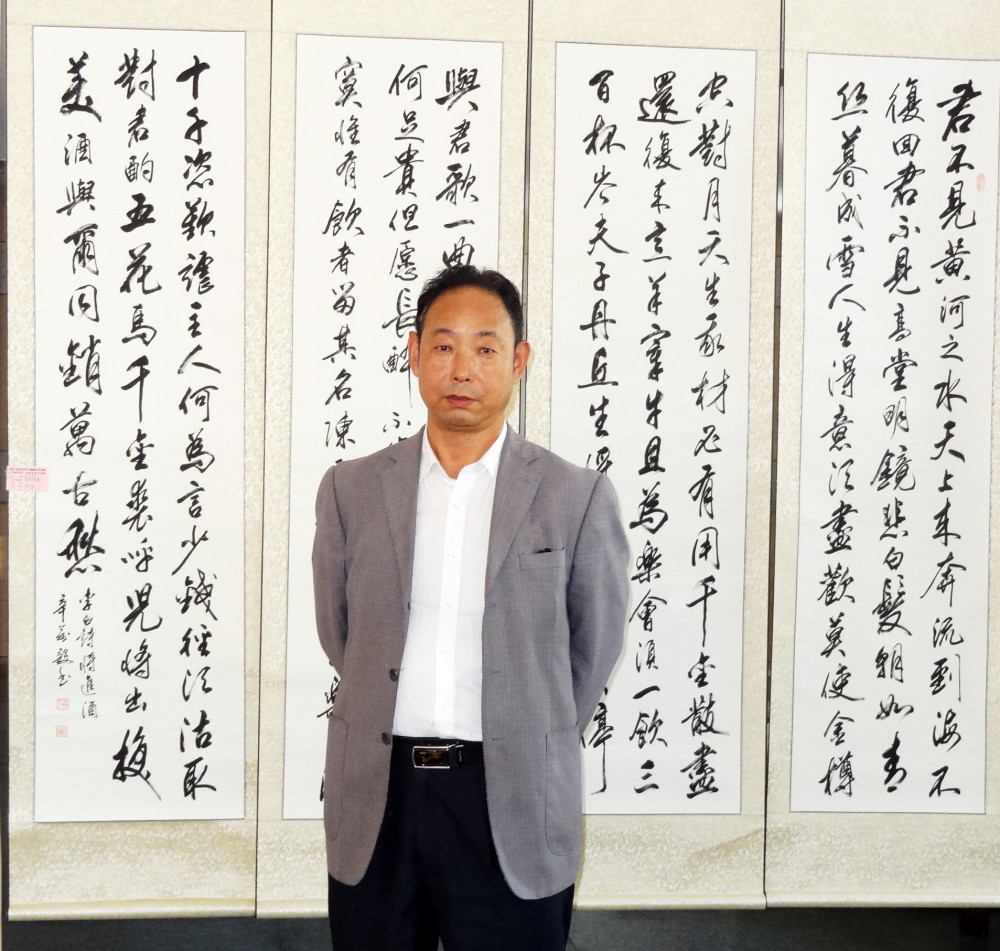 君不見黃河之水天上来奔流到海不
復回君不見高堂明鏡悲白髮朝如青
丝暮成雪人生得意须盡歡莫使金樽
空對月天生我材必有用千金散盡
還復来烹羊宰牛且為樂會須一飲三
百杯岑夫子丹丘生
與君歌一曲
何足貴但愿長醉不
寞惟有飲者留其名陳
十千恣歡謔主人何為言少錢徑须沽取
對君酌五花馬千金裘呼兒将出换
美酒與爾同銷萬古愁
李白詩将進酒